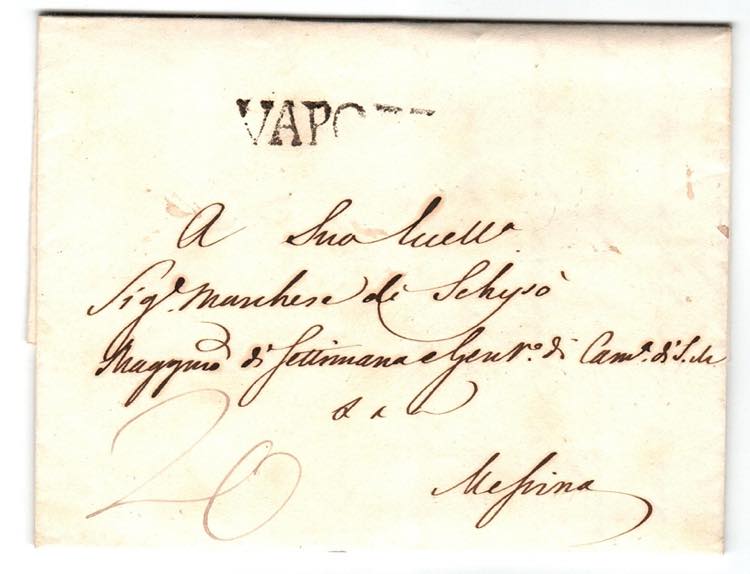 VAPO
A Sua Eccell.a
Sig.r Marchese di Schisò
Maggmo di Settimana e Gen.mo di Cam.a di S. M.
Messina
20